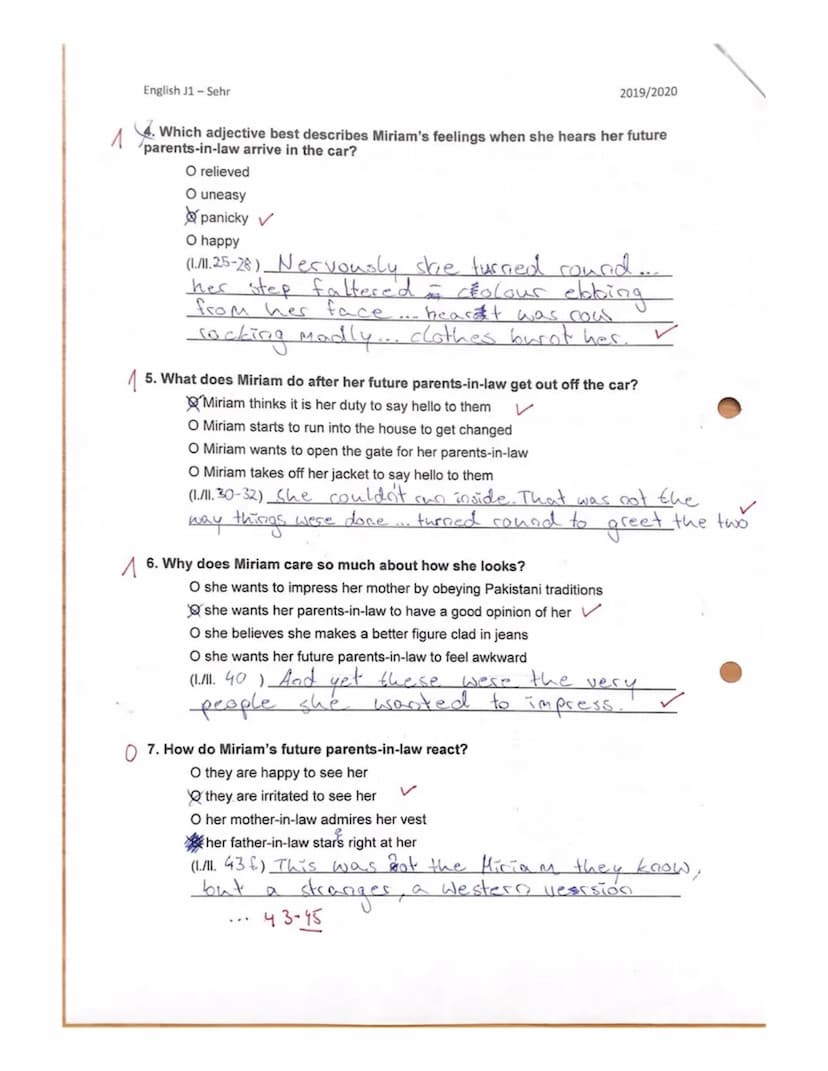 English J1 – Sehr 2019/2020
1 4. Which adjective best describes Miriam's feelings when she hears her future
parents-in-law arrive in the car?
O relieved
O uneasy
O panicky ✓
O happy
(l./ll. 25-28) Nervously she turned round...
her step faltered – colour ebbing
from her face ... heart was now
rocking madly... clothes burnt her. ✓
1 5. What does Miriam do after her future parents-in-law get out off the car?
O Miriam thinks it is her duty to say hello to them ✓
O Miriam starts to run into the house to get changed
O Miriam wants to open the gate for her parents-in-law
O Miriam takes off her jacket to say hello to them
(l./ll. 30-32) She couldn't run inside. That was not the
way things were done ... turned round to greet the two ✓
1 6. Why does Miriam care so much about how she looks?
O she wants to impress her mother by obeying Pakistani traditions
O she wants her parents-in-law to have a good opinion of her ✓
O she believes she makes a better figure clad in jeans
O she wants her future parents-in-law to feel awkward
(l./ll. 40 ) And yet these were the very
people she wanted to impress. ✓
0 7. How do Miriam's future parents-in-law react?
O they are happy to see her
O they are irritated to see her ✓
O her mother-in-law admires her vest
her father-in-law stares right at her
(l./ll. 43f.) This was not the Miriam they know,
but a stranger, a Western version
... 43-45